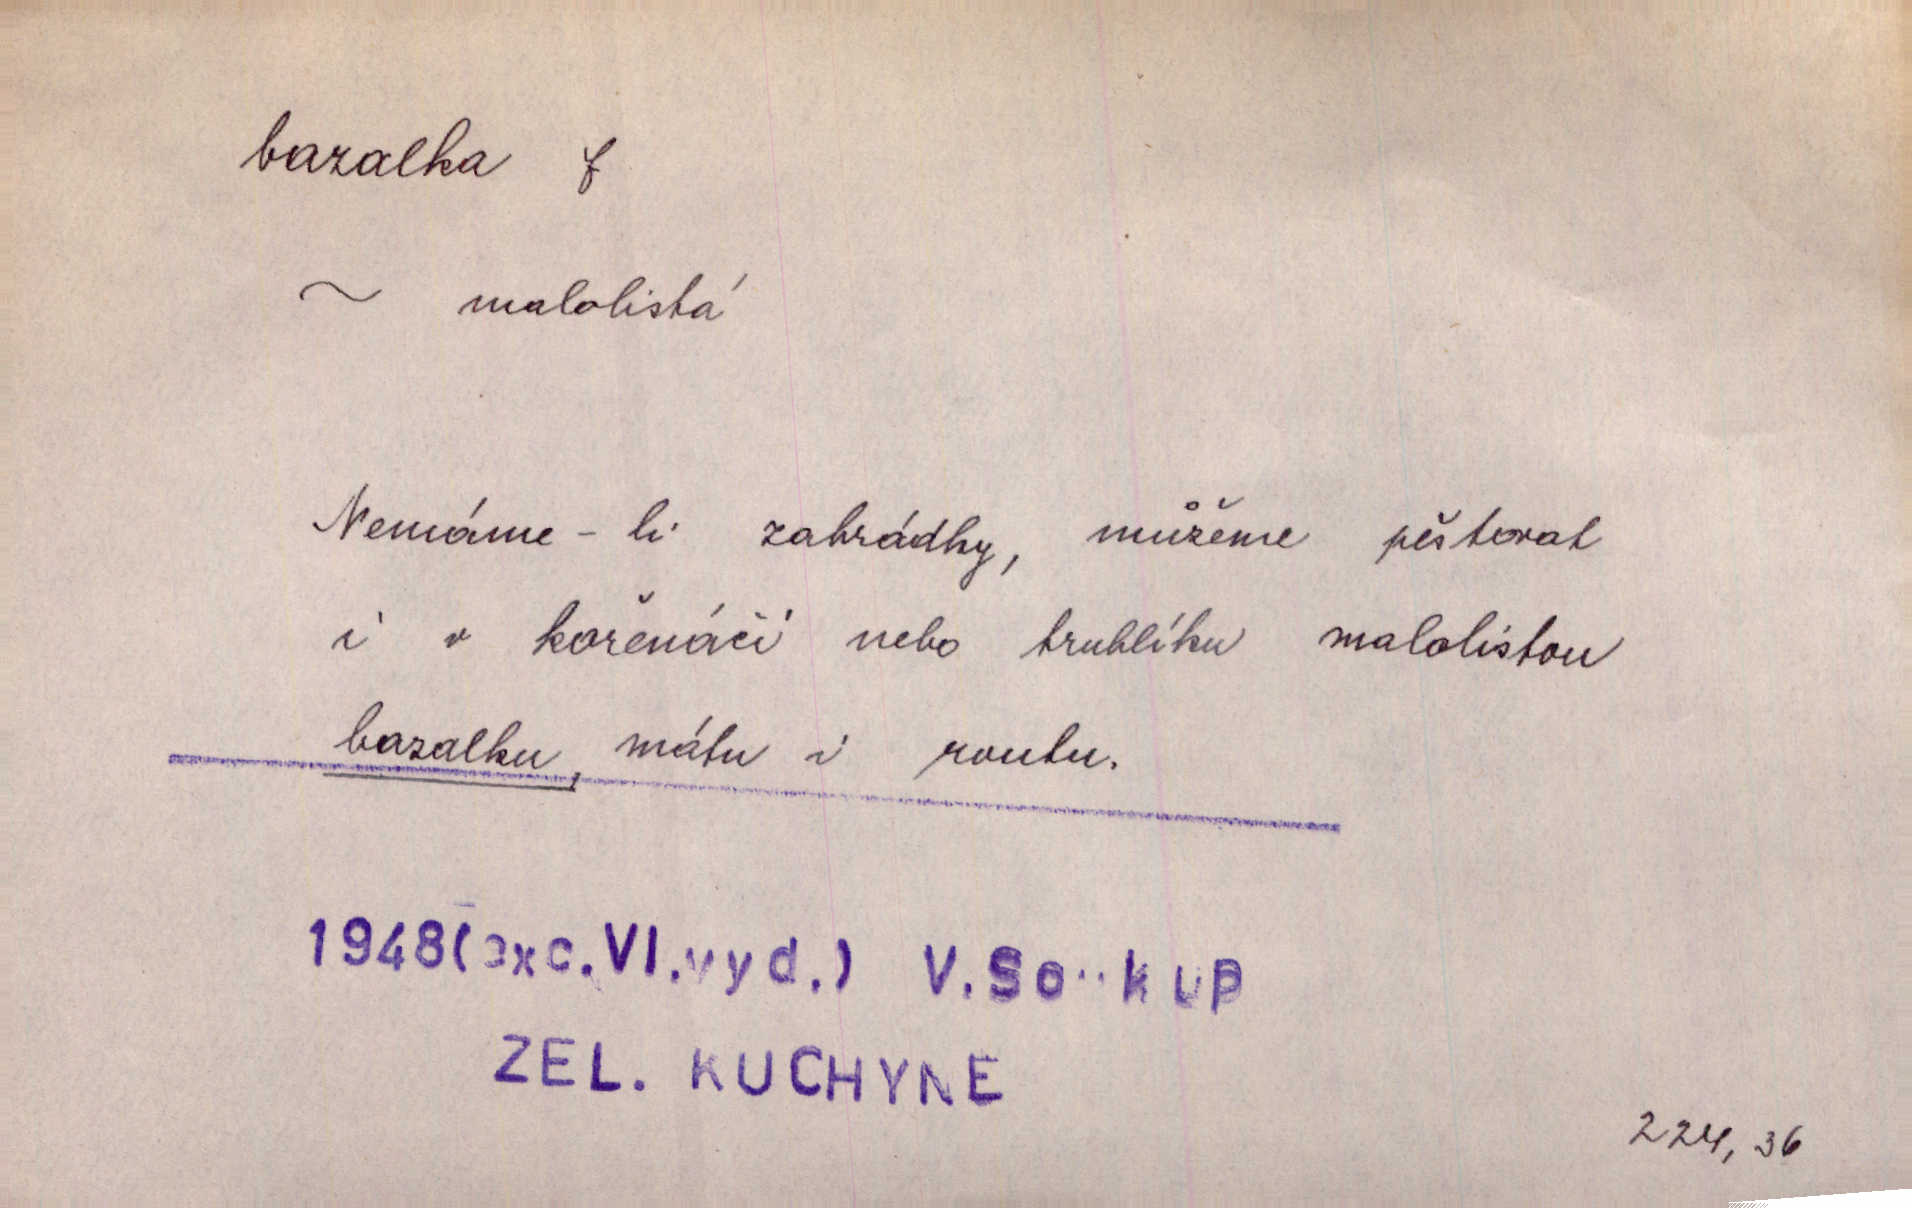 bazalka f
~ malolistá
Nemáme-li zahrádky, můžeme pěstovat
i v kořenáči nebo truhlíku malolistou
bazalku, mátu i routu.
1948(exc.VI.vyd.) V.Soukup
ZEL. KUCHYNE
224, 36